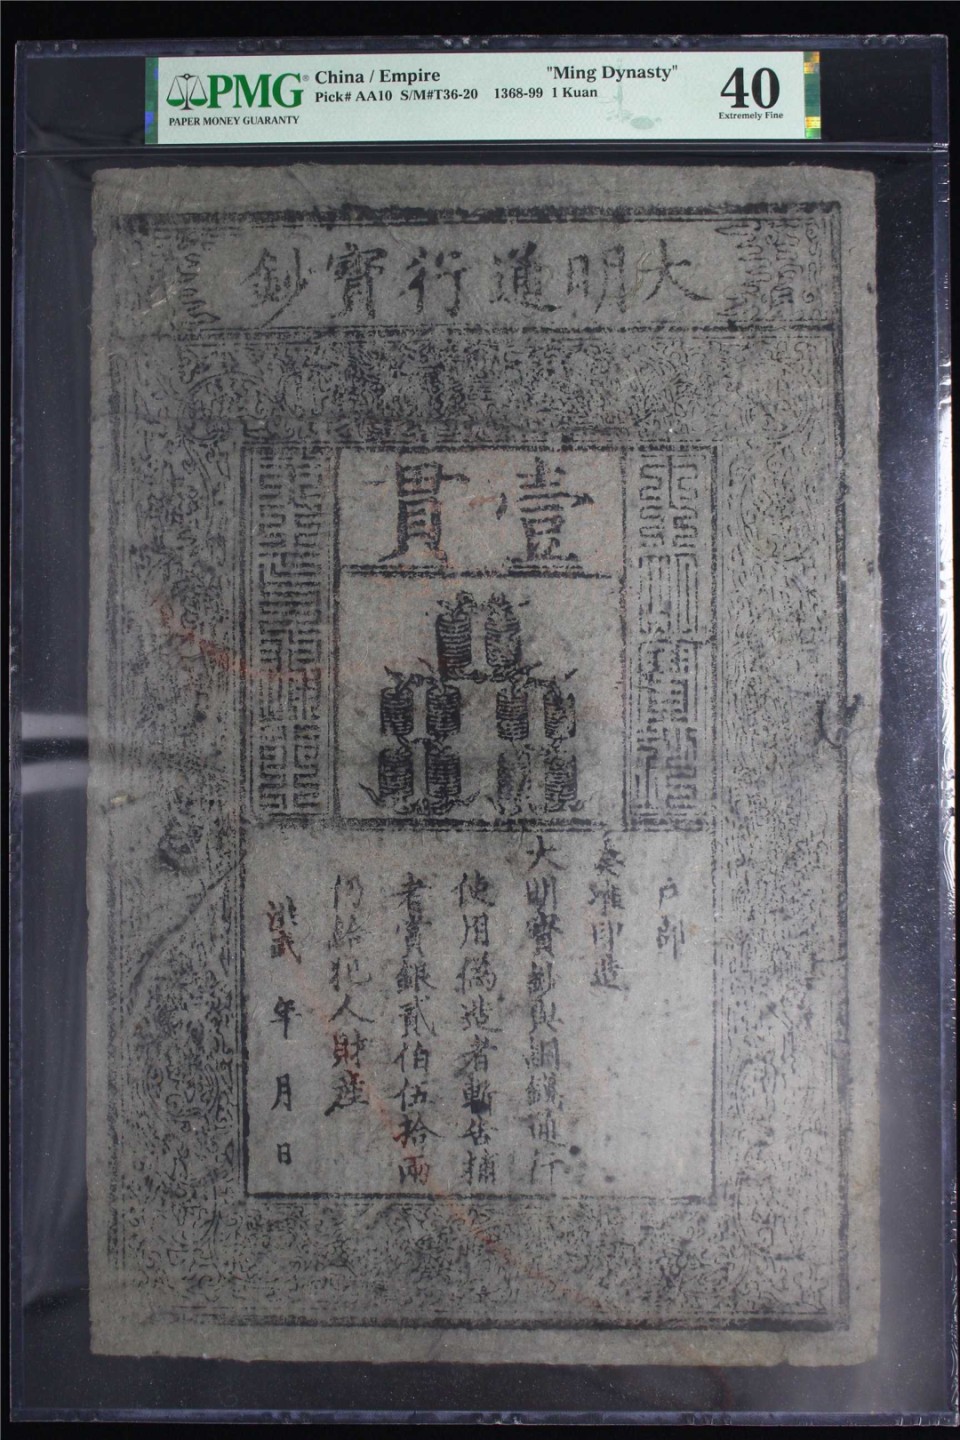 PMG
PAPER MONEY GUARANTY
China / Empire "Ming Dynasty"
Pick# AA10 S/M#T36-20 1368-99 1 Kuan
40
Extremely Fine
大明通行寶鈔
壹貫
戶部
奏准印造
大明寶鈔與銅錢通行
使用偽造者斬告捕
者賞銀貳伯伍拾兩
仍給犯人財産
洪武 年 月 日